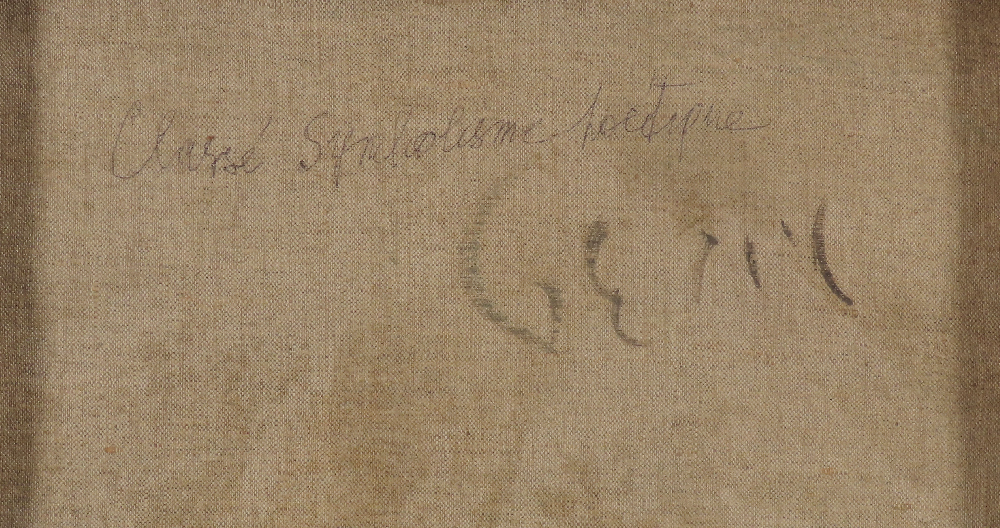 Classé Symbolisme poétique